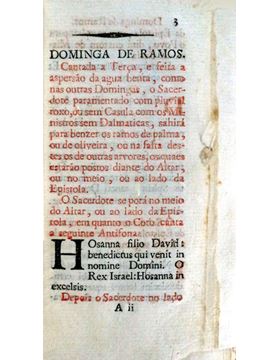 3
DOMINGA DE RAMOS.
Cantada a Terça, e feita a
aspersão da agua benta, como
nas outras Domingas, o Sacer-
dote paramentado com pluvial
roxo, ou sem Casula com os Mi-
nistros sem Dalmaticas, sahirá
para benzer os ramos de palma,
ou de oliveira, ou na falta des-
tes os de outras arvores, os quaes
estarão postos diante do Altar,
ou no meio, ou ao lado da
Epistola.
O Sacerdote se porá no meio
do Altar, ou ao lado da Epis-
tola, em quanto o Coro canta
a seguinte Antifona
HOsanna filio David:
benedictus qui venit in
nomine Domini. O
Rex Israel: Hosanna in
excelsis.
Depois o Sacerdote no lado
A ii